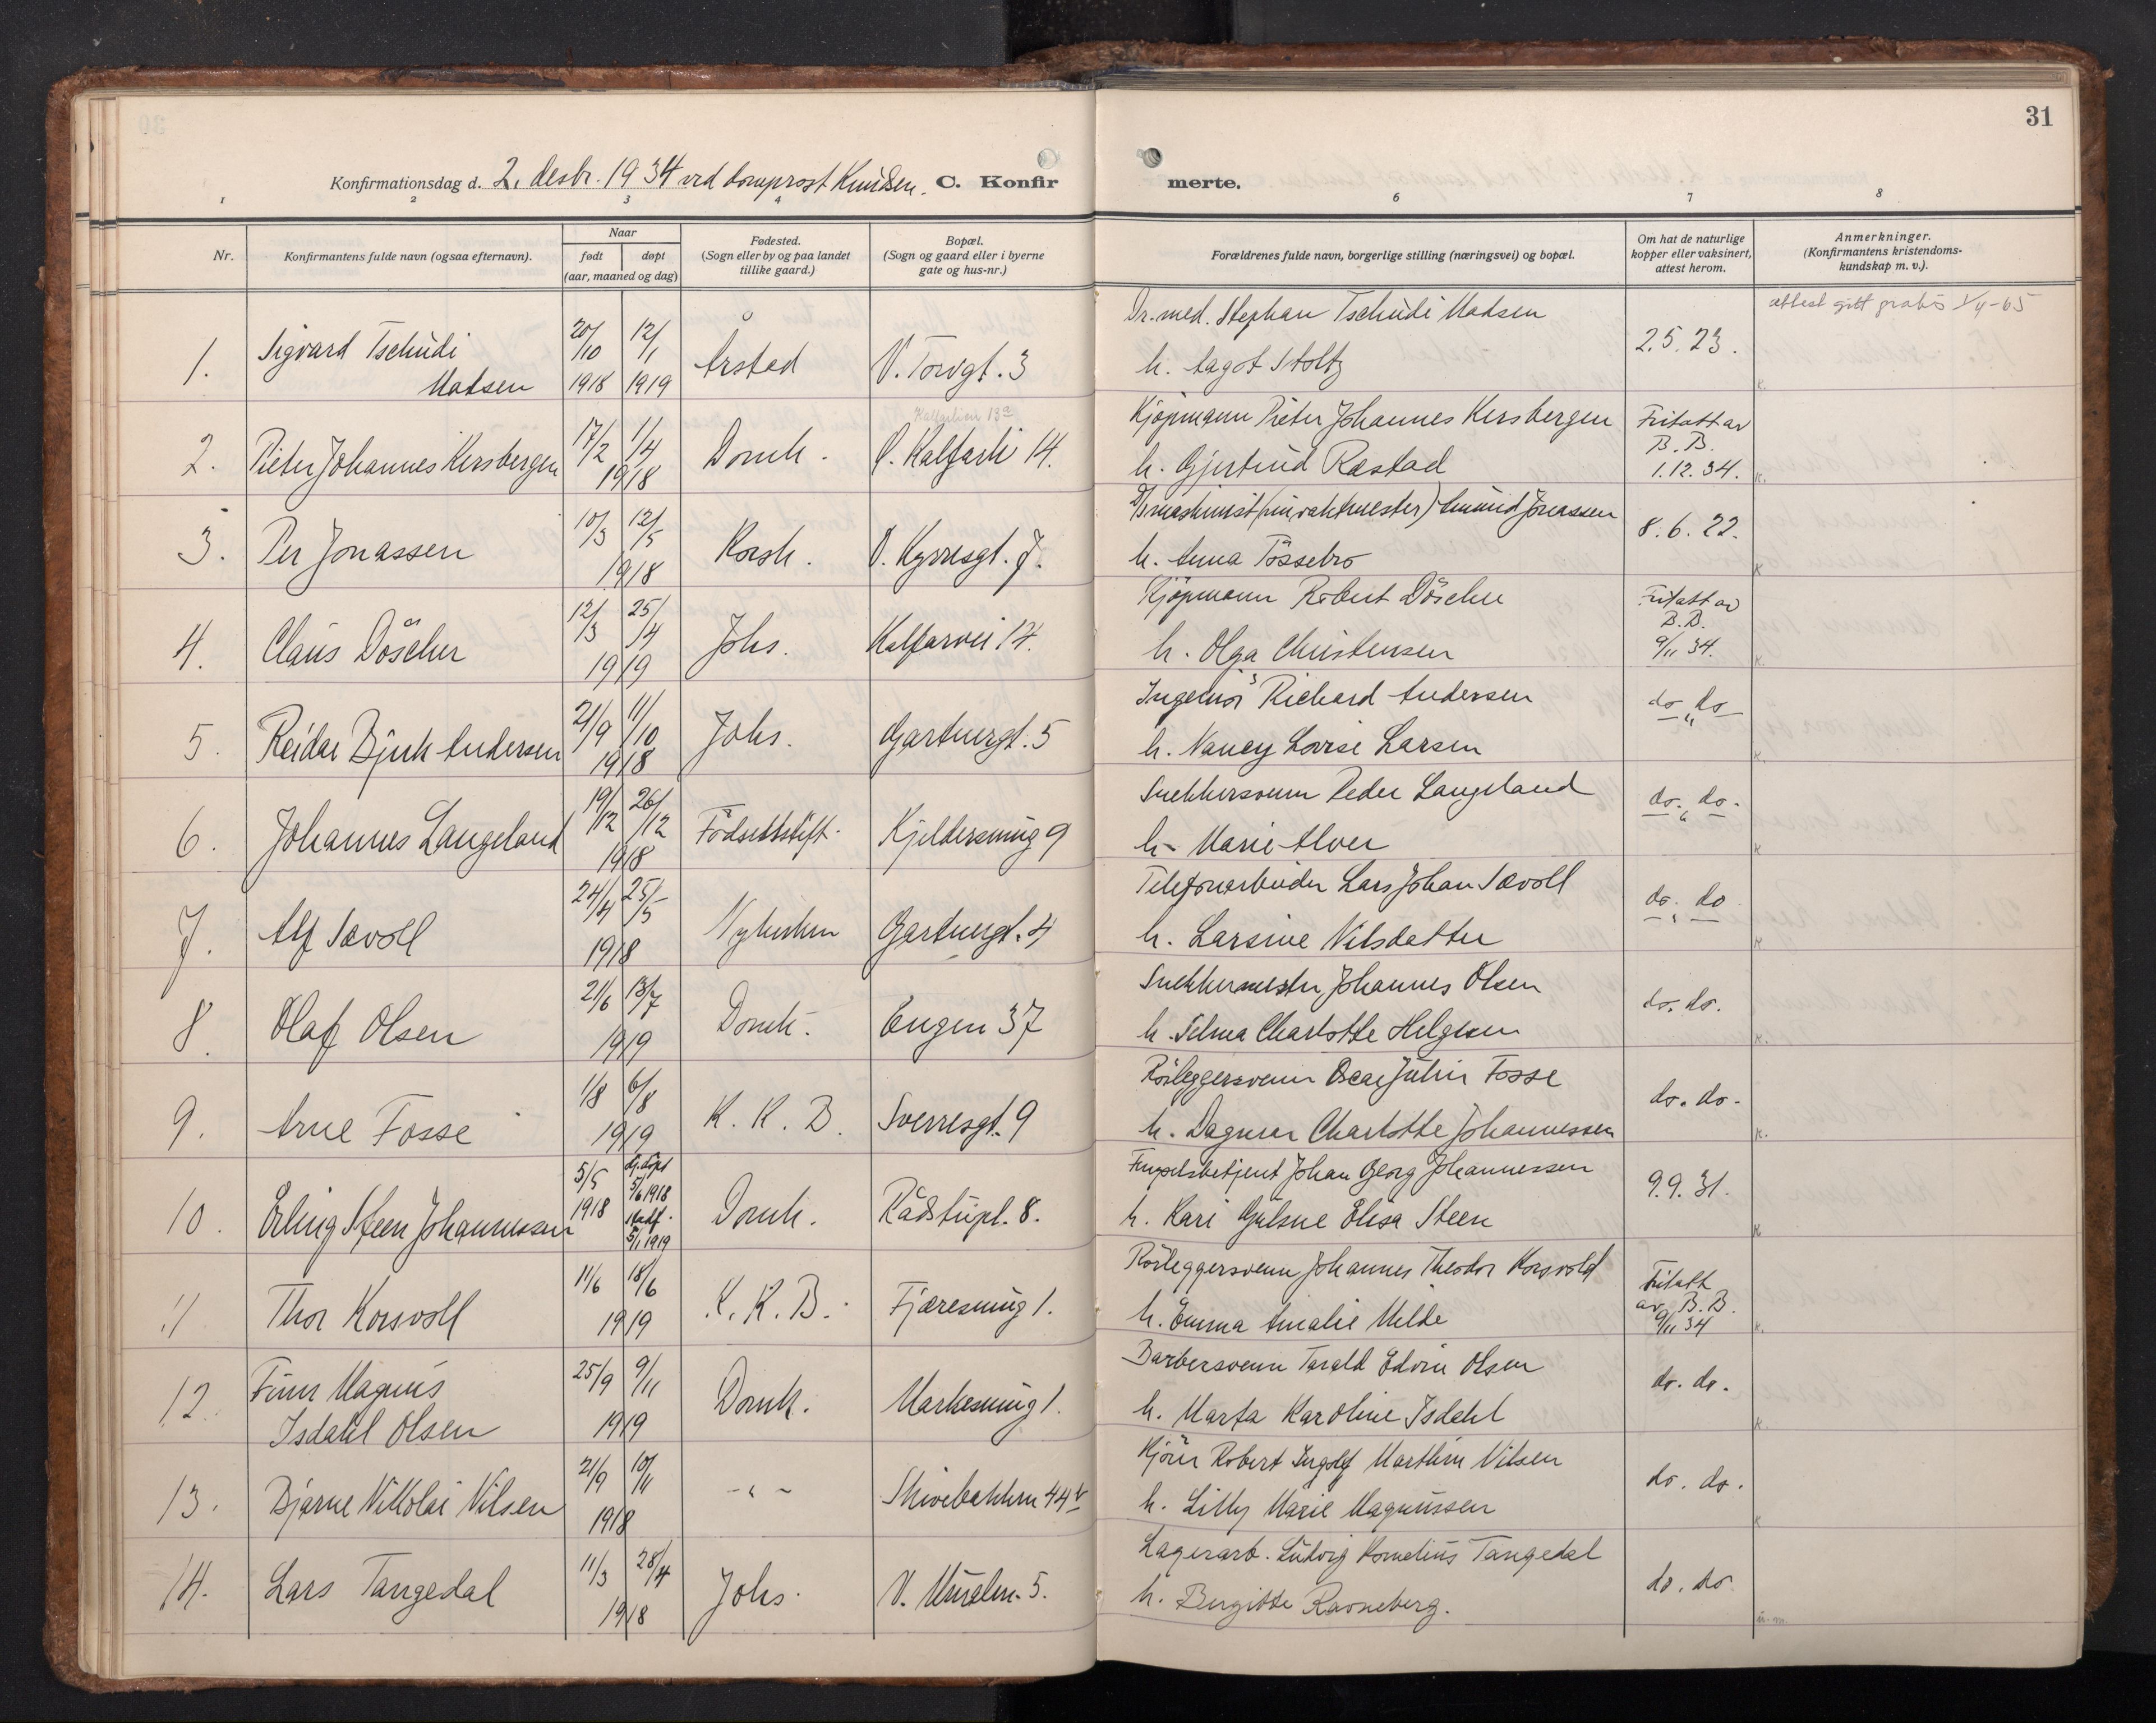 31
Konfirmationsdag d. 2. desbr. 1934 ved domprost Knudsen. C. Konfirmerte.
1 2 3 4 6 7 8
Nr.
Konfirmantens fulde navn (ogsaa efternavn).
Naar
født døpt
(aar, maaned og dag)
Fødested.
(Sogn eller by og paa landet
tillike gaard.)
Bopæl.
(Sogn og gaard eller i byerne
gate og hus-nr.)
Forældrenes fulde navn, borgerlige stilling (næringsvei) og bopæl.
Om hat de naturlige
kopper eller vaksinert,
attest herom.
Anmerkninger.
(Konfirmantens kristendoms-
kundskap m. v.).
1. Sigvard Tschudi
Madsen
20/10 1918 12/1 1919
Årstad
V. Torvgt. 3
Dr. med. Stephan Tschudi Madsen
h. Aagot Stoltz
2.5.23.
attest gitt gratis 1/4-65
k.
2. Pieter Johannes Kersbergen
17/2 11/4
1918
Domk.
Ø. Kalfarli 14.
Kalfarlien 13a
Kjøpmann Pieter Johannes Kersbergen
h. Gjertrud Rastad
Fritatt av
B.B.
1.12.34.
k.
3. Per Jonassen
10/3 12/5
1918
Korsk.
O. Kyrresgt. 7.
Jonassen
h. Anna Tössebro
8.6.22.
k
4. Claus Döscher
12/3 25/4
1919
Johs.
Kalfarvei 14.
Kjöpmann Robert Döscher
h. Olga Christensen
Fritatt av
B.B.
9/11 34.
k.
5. Reidar Bjerk Andersen
21/9 11/10
1918
Johs.
Gartnergt. 5
Ingeniör Richard Andersen
h. Nancy Lovise Larsen
do " do
k.
6. Johannes Langeland
19/12 26/12
1918
Födselsstift.
Kjeldersmug 9
Snekkersvenn Peder Langeland
h. Marie Alver
do. " do.
k
7. Alf Sævoll
24/4 25/5
1918
Nykirken
Gartnergt. 4
Telefonarbeider Lars Johan Sævoll
h. Larsine Nilsdatter
do. " do
k
8. Olaf Olsen
21/6 13/7
1919
Domk.
Engen 37
Snekkermester Johannes Olsen
h. Selma Charlotte Helgesen
do. do.
k.
9. Arne Fosse
1/8 6/8
1919
K. K. B.
Sverresgt. 9
Rörleggersvenn Oscar Julin Fosse
h. Dagmar Charlotte Johannessen
do. do.
k.
10. Erling Steen Johannessen
5/5 1918
hj. döpt
5/6 1918
stadf.
5/1 1919
Domk.
Rådstupl. 8.
Fengselsbetjent Johan Georg Johannessen
h. Kari Gulsne Elisa Steen
9.9.31.
k
11 Thor Korsvoll
11/6 18/6
1919
K. K. B.
Fjæresmug 1.
Rörleggersvenn Johannes Theodor Korsvold
h. Emma Amalie Milde
Fritatt
av B.B.
9/11 34
k.
12. Finn Magnus
Isdahl Olsen
25/9 9/11
1919
Domk.
Markesmug 1.
Barbersvenn Tarald Edvin Olsen
h. Marta Karoline Isdahl
do. do.
k.
13. Bjarne Nikolai Nilsen
21/9 10/11
1918
- " -
Skivebakken 44
Kjörer Robert Ingolf Marthin Nilsen
h. Lilly Marie Magnussen
do. do.
k
14. Lars Tangedal
11/3 28/4
1918
Johs.
V. Muralm. 5.
Lagerarb. Ludvig Kornelius Tangedal
h. Birgitte Ravneberg.
do. do.
u.m.